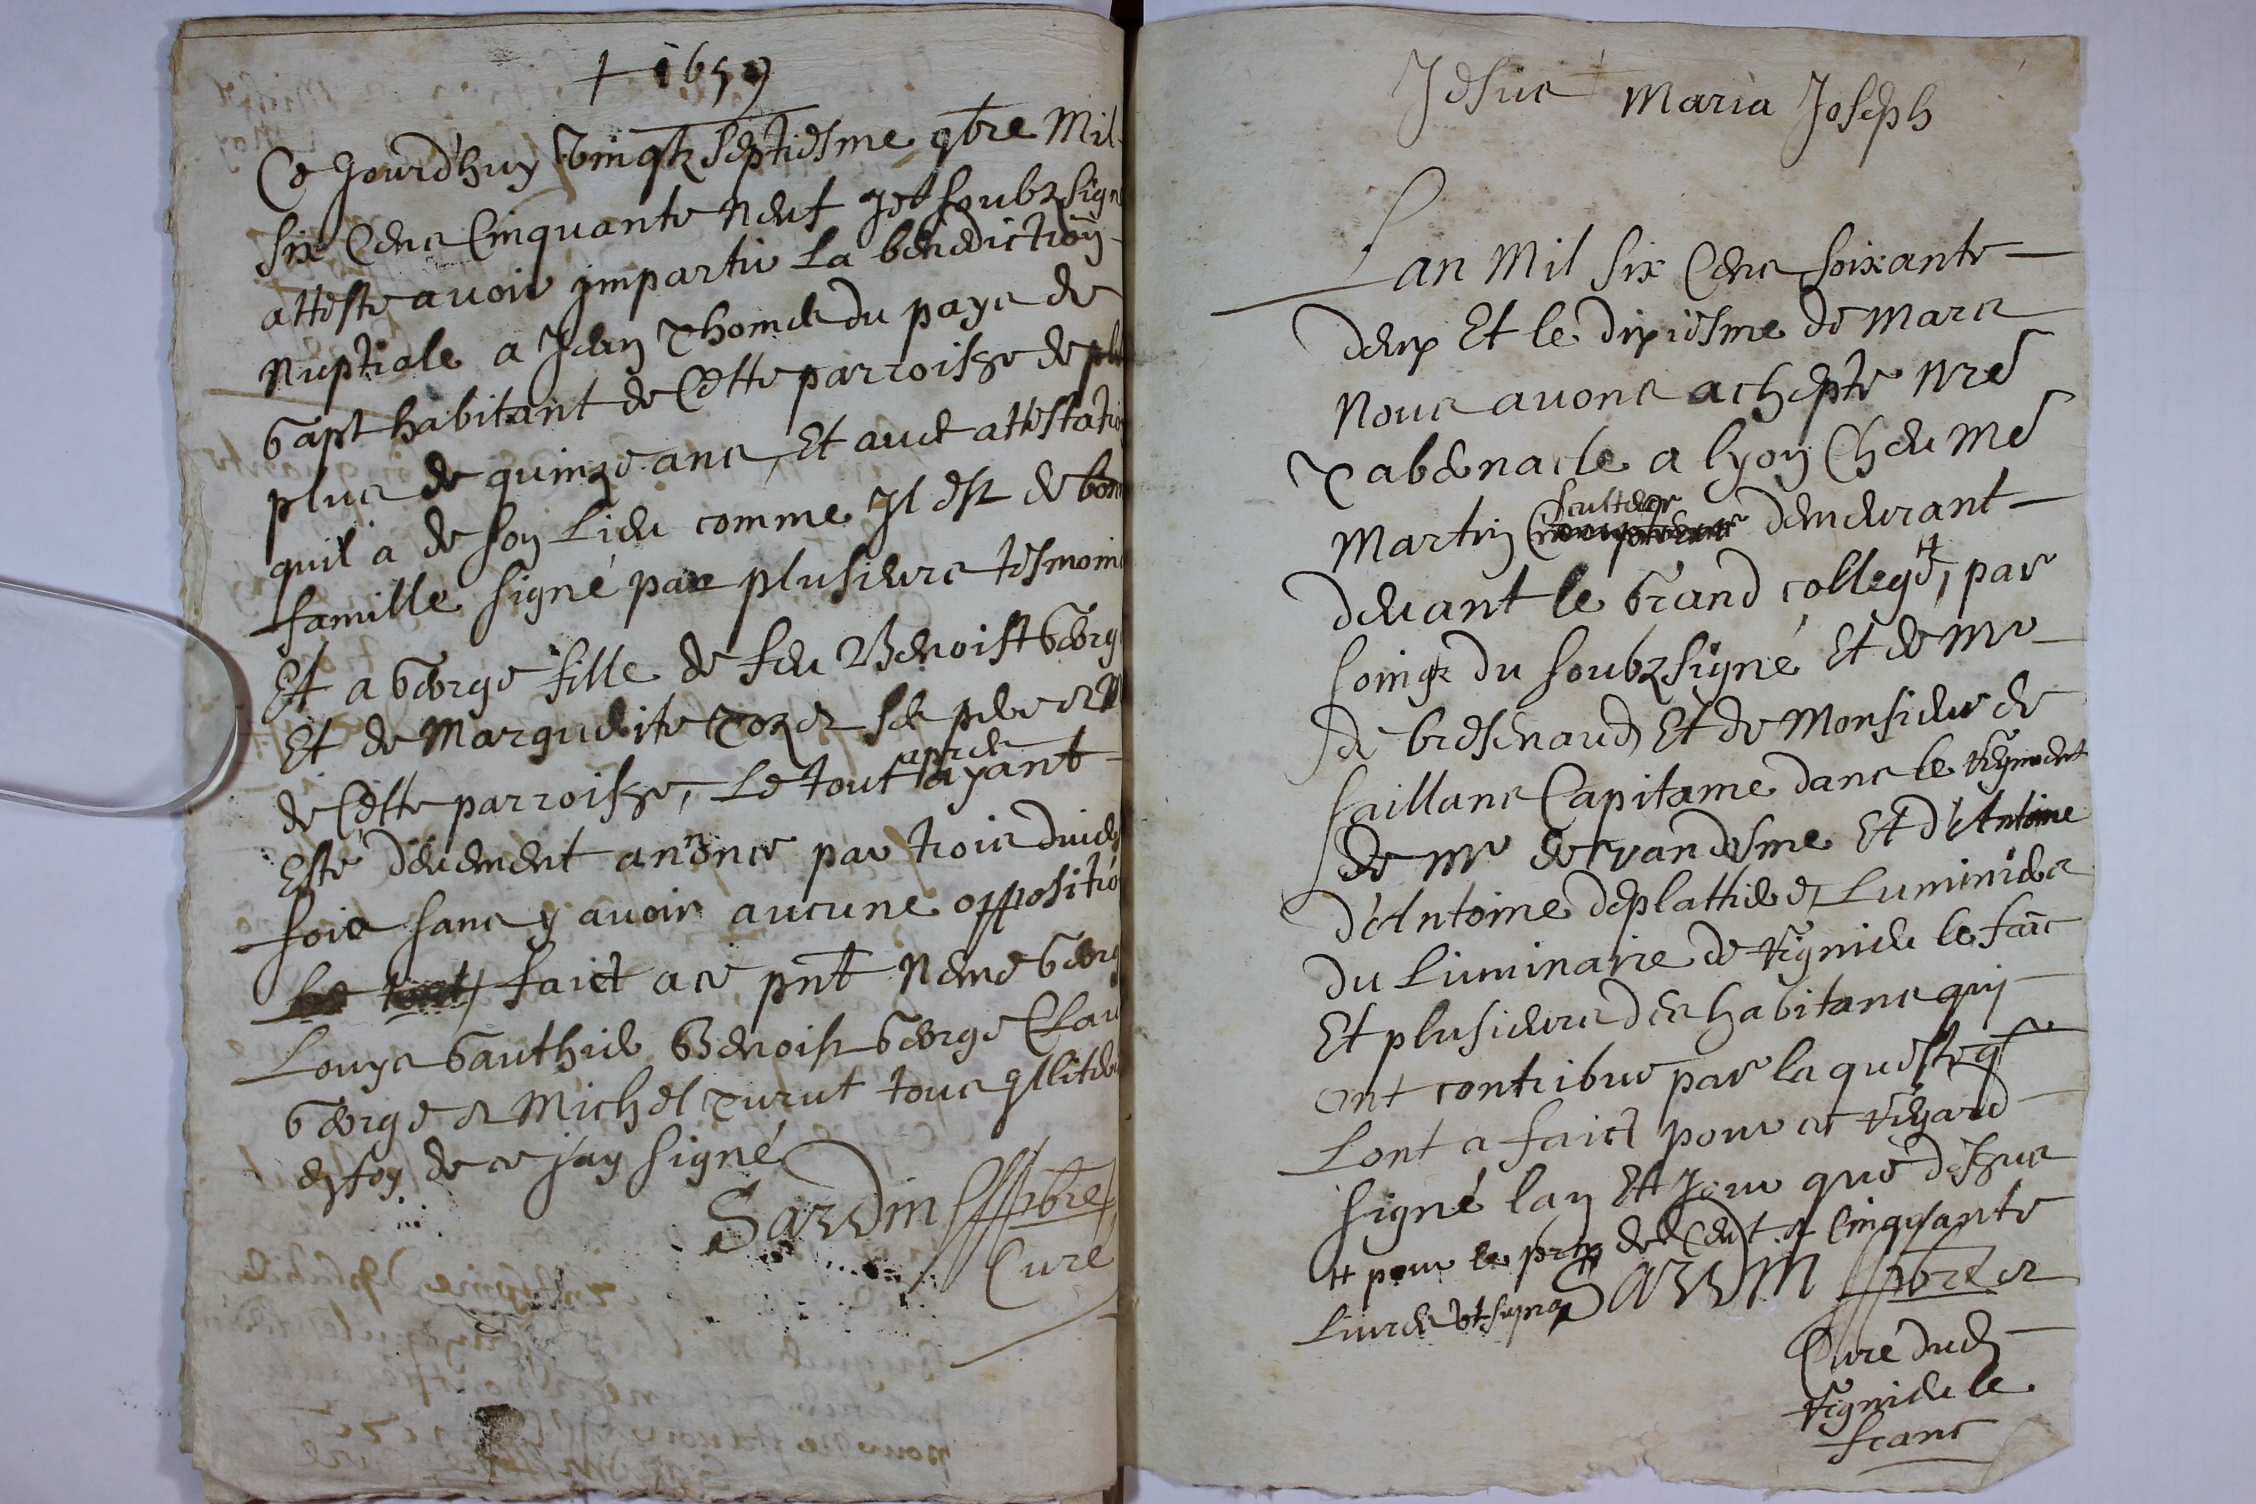 + 1659
Ce Jourd'huy vingt septiesme 9bre Mil
six Cens Cinquante neuf Je soubzsign
atteste avoir impartir La benediction
nuptiale a Jean Thomas du pays de
Gapt habitant de Cette parroisse de
plus de quinze ans, Et avec attestatio
quil a de son Lieu comme Il est de bon
famille signé par plusieurs tesmoins
Et a George fille de feu Benoist Georg
Et de Marguerite
de Cette parroisse, Le tout apres ayant
Esté deuement annonce par trois divers
fois sans y avoir aucune oppositio
faict a ce pnt George
Louys Gauthier Benoist George Clau
George et Michel Turut tous illiter
en foy de ce j'ay signé
Sardin pbre
Curé
Jesus Maria Joseph
Lan Mil six Cens soixante
deux Et le dixiesme de Mars
Nous avons achepte nre
Tabernacle a lyon Cheu Me
Martin sculteur demeurant
devant le Grand college, # par
soing du soubzsigné Et de Mr
de bresenaud Et de Monsieur de
saillans Capitaine dans le Regiment
de Mr de vandesme Et d'Antoine
d'Antoine deplattiere Luminier
du Luminaire de Regnieu le franc
Et plusieurs des habitans qui
ont contribue par la queste q
Lont a faict pour ce regard
signé lan Et Jour que dessus
# pour le prix de Cent et Cinquante
Livres ut supra Sardin pbre et
Curé dud
Regnieu le
franc